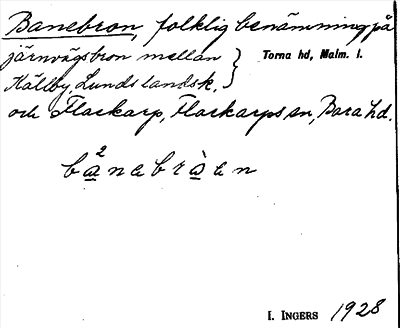 Banebron, folklig benämning på
järnvägsbron mellan } Torna hd, Malm. l.
Källby, Lunds landsk.
och Flackarp, Flackarps sn, Bara hd.
b²a̲nebràen
I. INGERS 1928